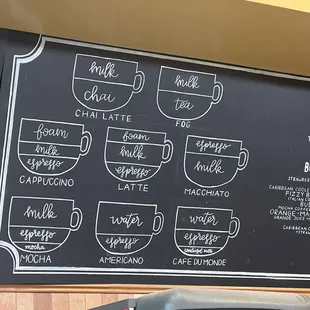 milk
chai
CHAI LATTE
milk
tea
FOG
foam
milk
espresso
CAPPUCCINO
foam
milk
espresso
LATTE
espresso
milk
MACCHIATO
milk
espresso
mocha
MOCHA
water
espresso
AMERICANO
water
espresso
CAFE DU MONDE
CARIBBEAN COOL
FIZZY
ORANGE
CARIBBEAN